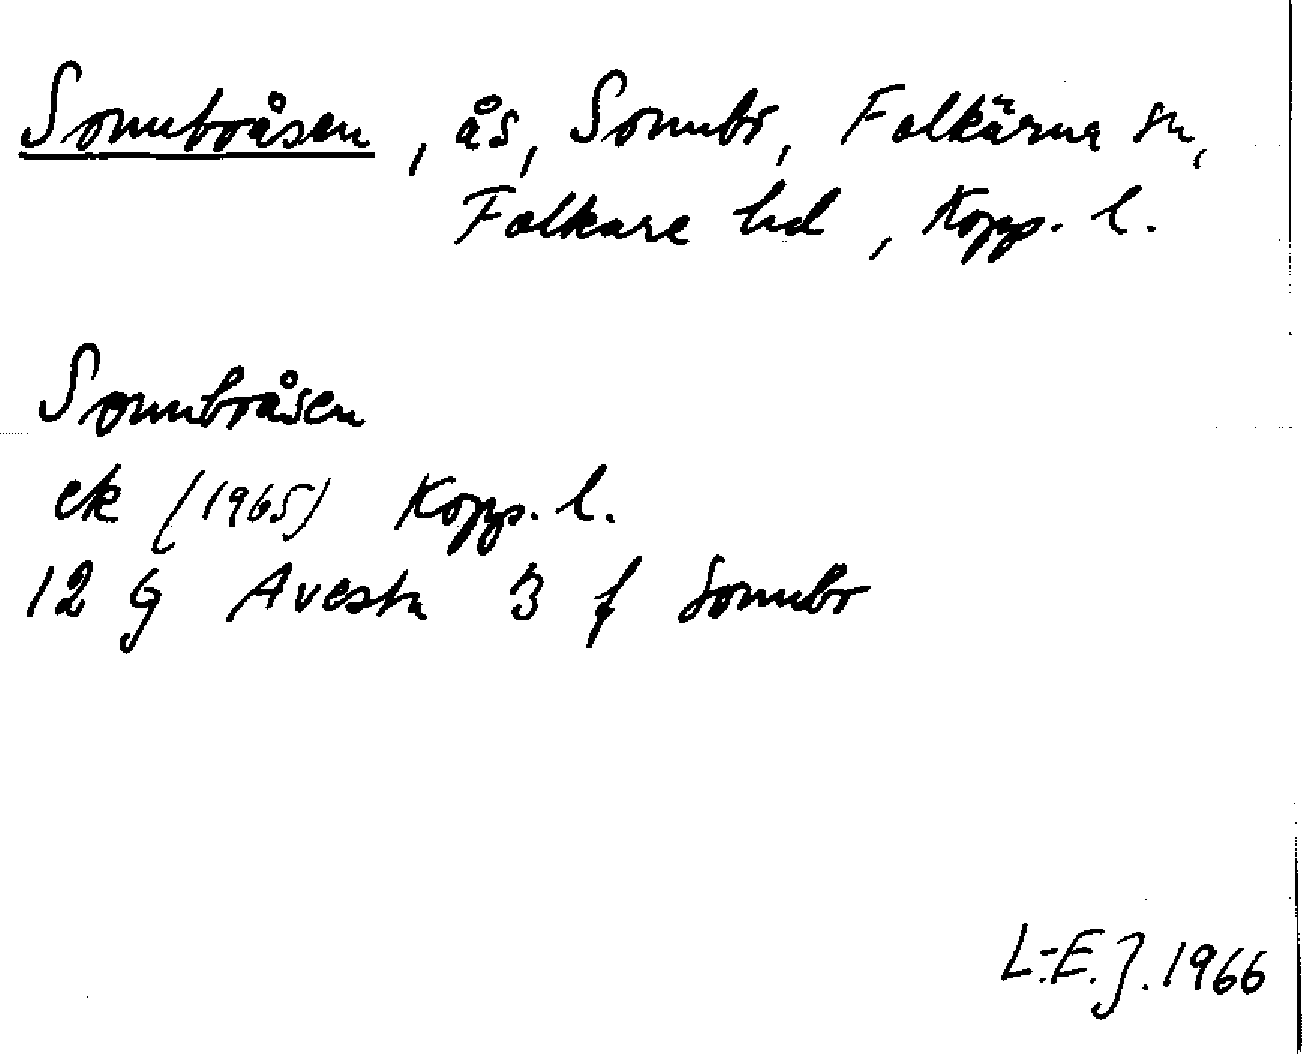 Sonnboåsen, ås, Sonnbo, Folkärna sn,
Folkare hd, Kopp. l.
Sonnboåsen
ek (1965) Kopp. l.
12 G Avesta 3 f Sonnbo
L.-E. J. 1966